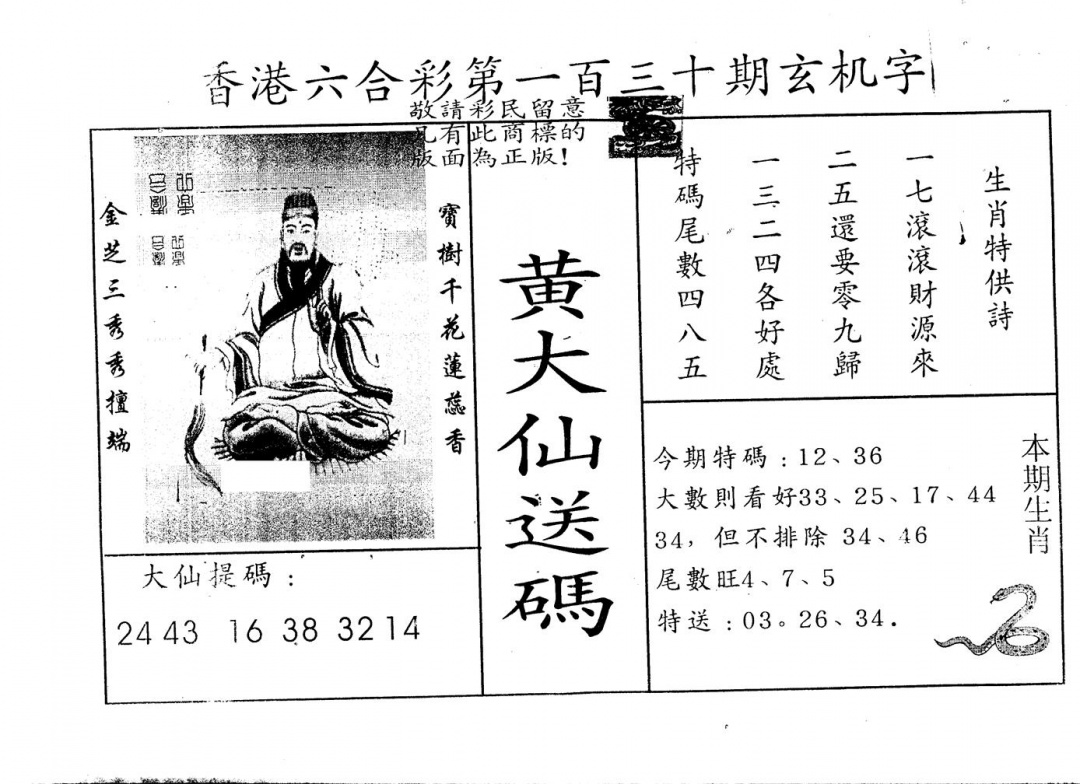 香港六合彩第一百三十期玄机字
敬請彩民留意
凡有此商標的
版面為正版!
金芝三秀秀擅端
寶樹千花蓮蕊香
黄大仙送碼
生肖特供詩
一七滾滾財源來
二五還要零九歸
一三二四各好處
特碼尾數四八五
大仙提碼:
24 43 16 38 32 14
今期特碼:12、36
大數則看好33、25、17、44
34,但不排除 34、46
尾數旺4、7、5
特送:03。26、34.
本期生肖